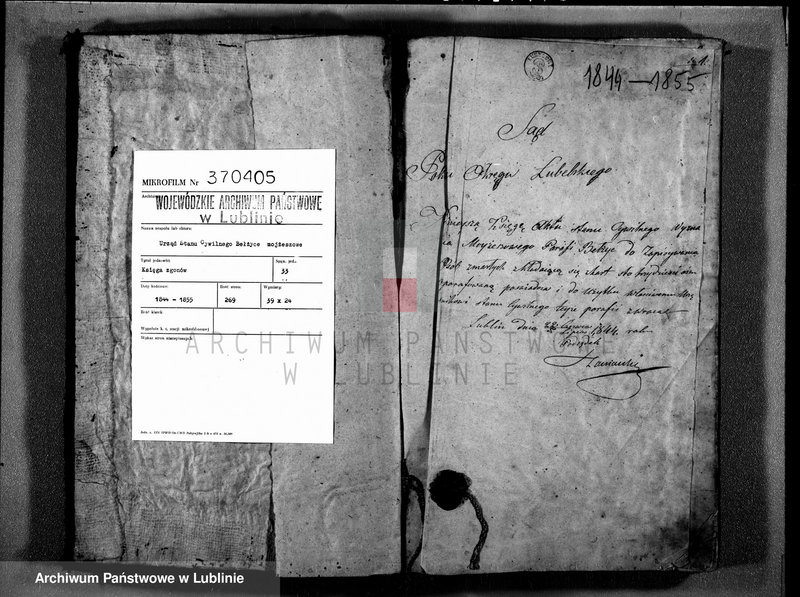 MIKROFILM Nr 370405
Archiwum
WOJEWÓDZKIE ARCHIWUM PAŃSTWOWE
w Lublinie
Nazwa zespołu lub zbioru:
Urząd Stanu Cywilnego Bełżyce mojżeszowe
Tytuł jednostki:
Sygn. jed.:
Księga zgonów
33
Daty końcowe:
Ilość stron:
Wymiary:
1844 - 1855
269
39 x 24
Ilość klatek:
Wypełnia k. o. sekcji mikrofilmowej
Wykaz stron nieczytelnych:
1844 — 1855
Sąd
Pokoju Okręgu Lubelskiego
Niniejszą Księgę Aktów Stanu Cywilnego Wyzna
nia Moyżeszowego Parafii Bełżyc do Zapisywania
Osób zmarłych składającą się z kart sto
posiada i do użytku
stanu Cywilnego teyże parafii zwraca
Lublin dnia Lipca 1844 roku
Podsędek
ARCHIWUM PAŃSTWOWE
W LUBLINIE
Archiwum Państwowe w Lublinie